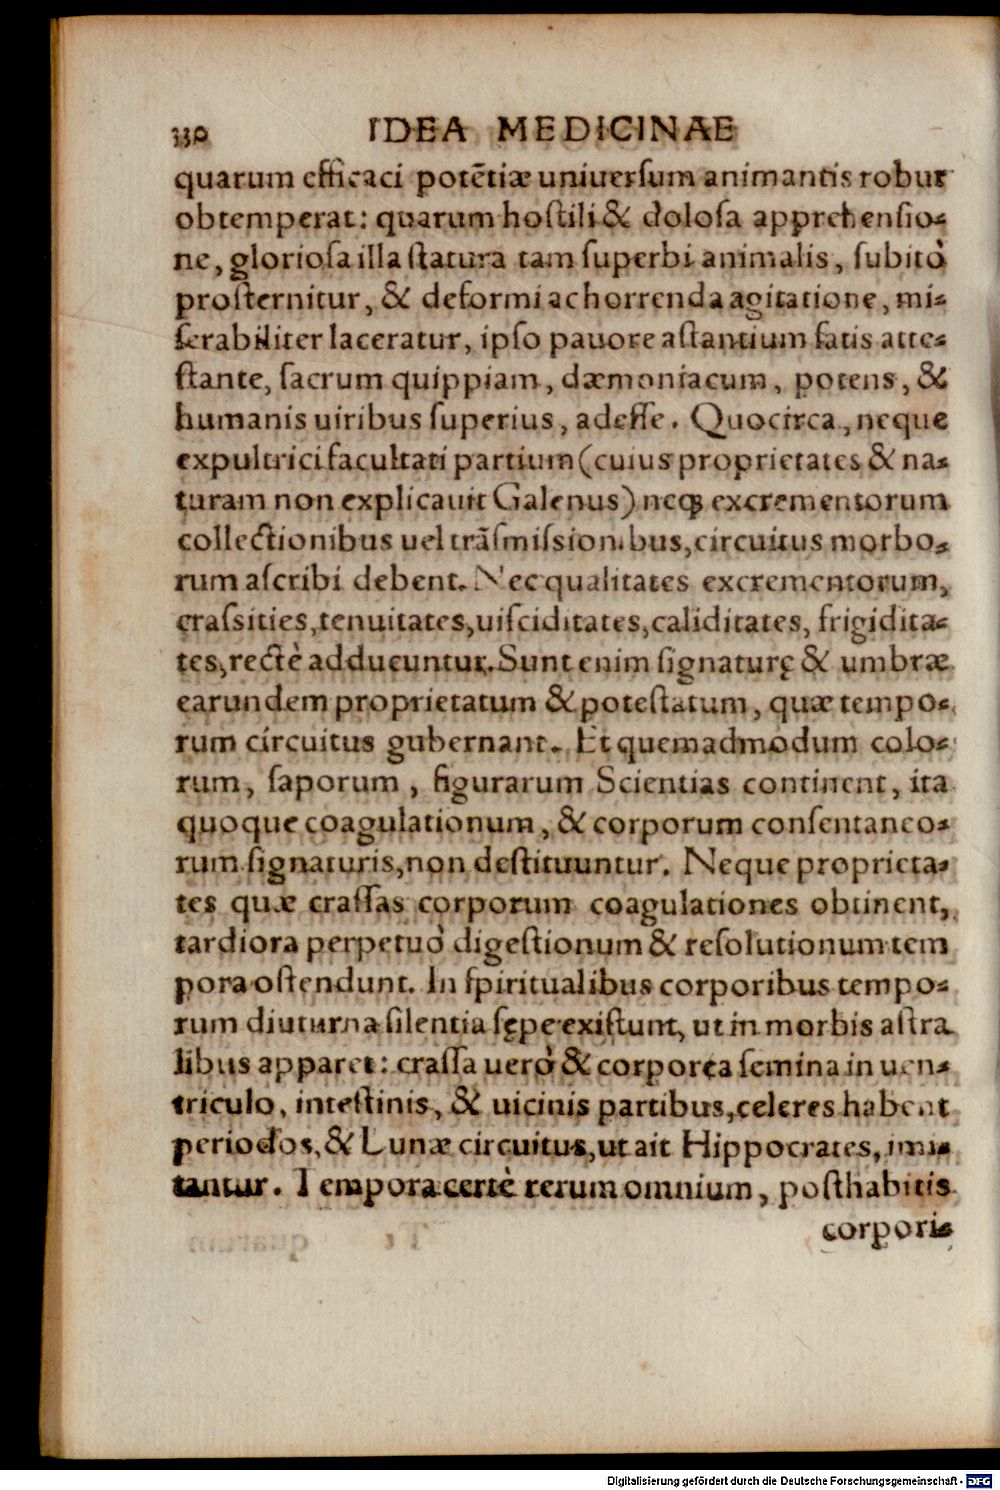 330 IDEA MEDICINAE
quarum efficaci potẽtiæ uniuersum animantis robur
obtemperat: quarum hostili & dolosa apprehensio-
ne, gloriosa illa statura tam superbi animalis, subitò
prosternitur, & deformi ac horrenda agitatione, mi-
serabiliter laceratur, ipso pauore astantium satis atte-
stante, sacrum quippiam, dæmoniacum, potens, &
humanis uiribus superius, adesse. Quocirca, neque
expultrici facultati partium (cuius proprietates & na-
turam non explicauit Galenus) neqꝫ excrementorum
collectionibus uel trãsmissionibus, circuitus morbo-
rum ascribi debent. Nec qualitates excrementorum,
crassities, tenuitates, uisciditates, caliditates, frigidita-
tes, rectè adducuntur. Sunt enim signaturę & umbræ
earundem proprietatum & potestatum, quæ tempo-
rum circuitus gubernant. Et quemadmodum colo-
rum, saporum, figurarum Scientias continent, ita
quoque coagulationum, & corporum consentaneo-
rum signaturis, non destituuntur. Neque proprieta-
tes quæ crassas corporum coagulationes obtinent,
tardiora perpetuò digestionum & resolutionum tem
pora ostendunt. In spiritualibus corporibus tempo-
rum diuturna silentia sępe existunt, ut in morbis astra
libus apparet: crassa uerò & corporea semina in uen-
triculo, intestinis, & uicinis partibus, celeres habent
periodos, & Lunæ circuitus, ut ait Hippocrates, imi-
tantur. Tempora certè rerum omnium, posthabitis
corpori-
Digitalisierung gefördert durch die Deutsche Forschungsgemeinschaft - DFG